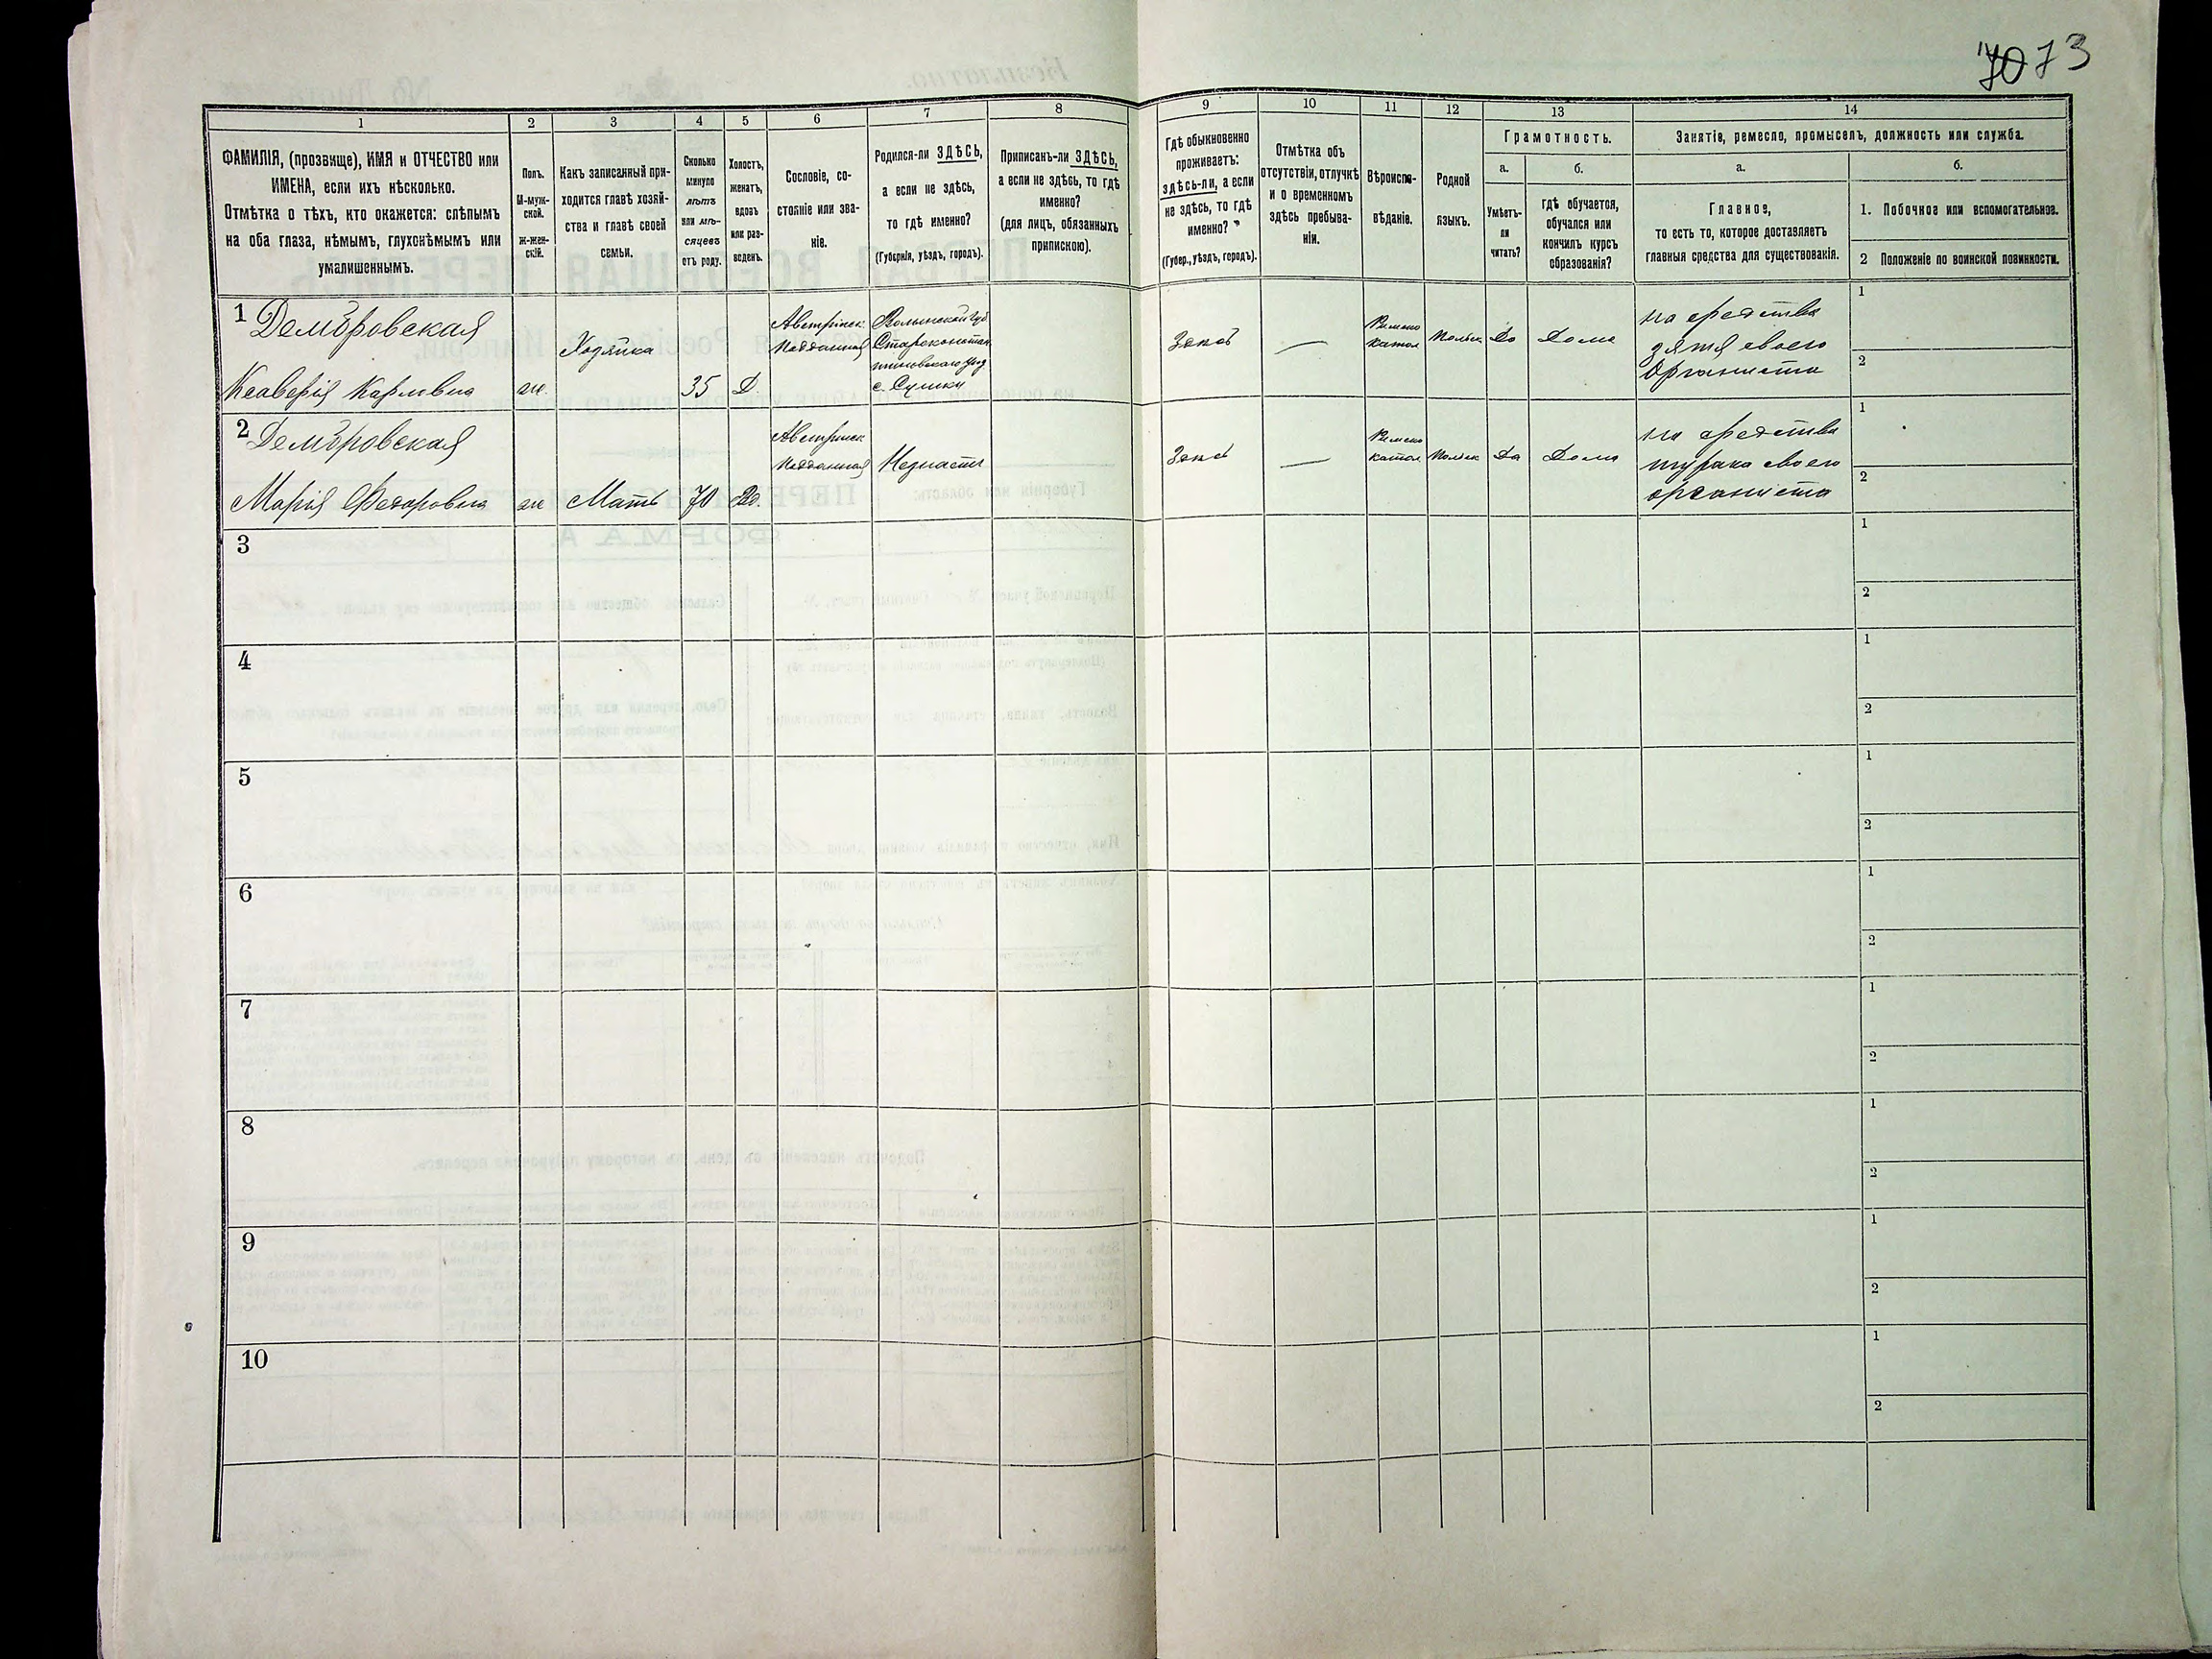 70 73
1
2
3
4
5
6
7
8
9
10
11
12
13
14
ФАМИЛІЯ, (прозвище), ИМЯ и ОТЧЕСТВО или
ИМЕНА, если ихъ нѣсколько.
Отмѣтка о тѣхъ, кто окажется: слѣпымъ
на оба глаза, нѣмымъ, глухонѣмымъ или
умалишеннымъ.
Полъ.
М-муж-
ской.
Ж-жен-
скій.
Какъ записанный при-
ходится главѣ хозяй-
ства и главѣ своей
семьи.
Сколько
минуло
лѣтъ
или мѣ-
сяцевъ
отъ роду.
Холостъ,
женатъ,
вдовъ
или раз-
веденъ.
Сословіе, со-
стояніе или зва-
ніе.
Родился-ли ЗДѢСЬ,
а если не здѣсь,
то гдѣ именно?
(Губернія, уѣздъ, городъ).
Приписанъ-ли ЗДѢСЬ,
а если не здѣсь, то гдѣ
именно?
(для лицъ, обязанныхъ
припискою).
Гдѣ обыкновенно
проживаетъ:
здѣсь-ли, а если
не здѣсь, то гдѣ
именно?
(Губер., уѣздъ, городъ).
Отмѣтка объ
отсутствіи, отлучкѣ
и о временномъ
здѣсь пребыва-
ніи.
Вѣроиспо-
вѣданіе.
Родной
языкъ.
Грамотность.
а.
б.
Умѣетъ-
ли
читать?
гдѣ обучается,
обучался или
кончилъ курсъ
образованія?
Занятіе, ремесло, промыселъ, должность или служба.
а.
б.
Главное,
то есть то, которое доставляетъ
главныя средства для существованія.
1. Побочное или вспомогательное.
2 Положеніе по воинской повинности.
1
Домбровская
Ксаверія Карловна
ж.
Хозяйка
35
Д.
Австрійск.
Подданная
Волынской Губ
Староконстан
тиновскаго Уѣз
с. Сушки
Здесь
—
Римско
катол
Польск
Да
Дома
на средства
зятя своего
Органиста
1
2
2
Домбровская
Марія Федоровна
ж
Мать
70
Вд.
Австрійск
Подданная
Здесь
—
Римско
катол
Польск
Да
Дома
на средства
своего
органиста
1
2
3
1
2
4
1
2
5
1
2
6
1
2
7
1
2
8
1
2
9
1
2
10
1
2